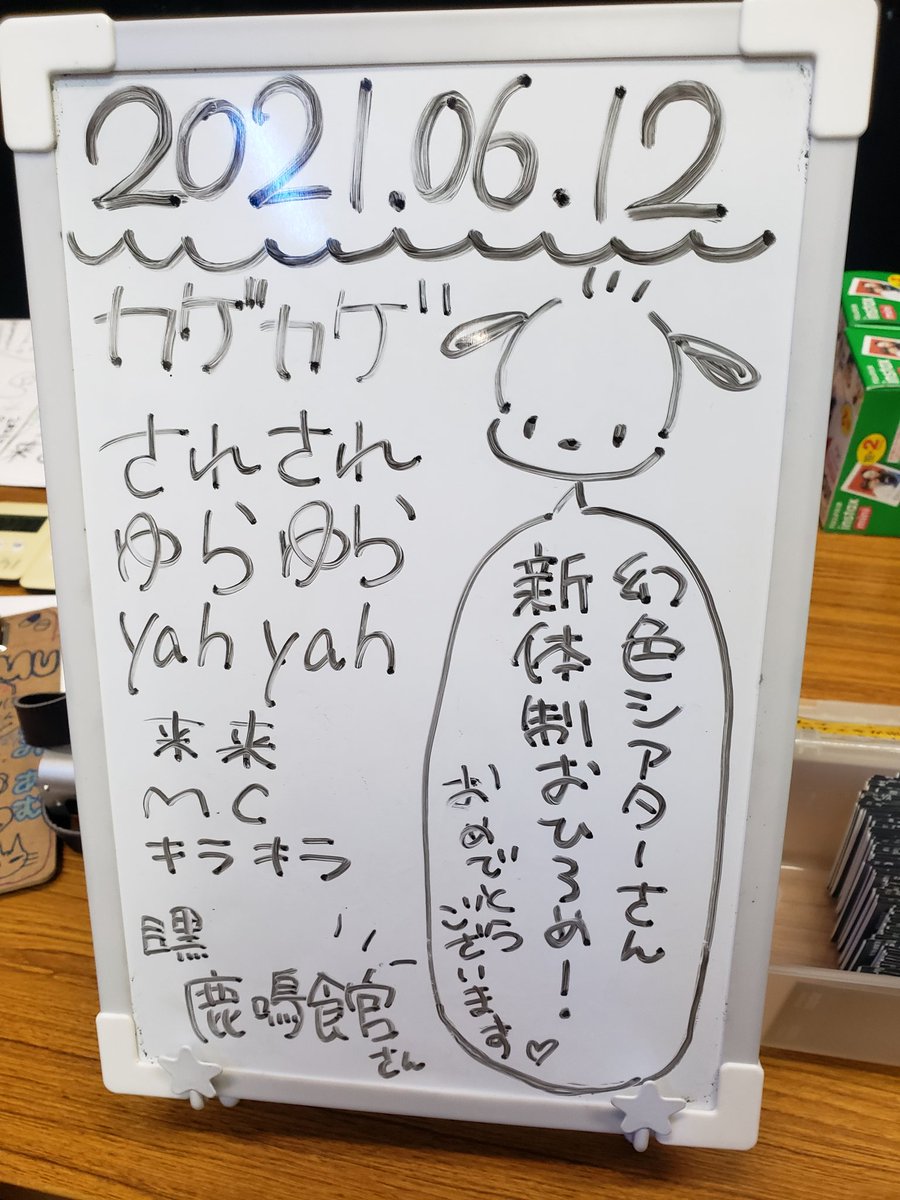 2021.06.12
カゲカゲ
されされ
ゆらゆら
yah yah
来来
MC
キラキラ
鹿鳴館
さん
幻色シアターさん
新体制おひろめー!
おめでとう
ございます♡
instax
mini